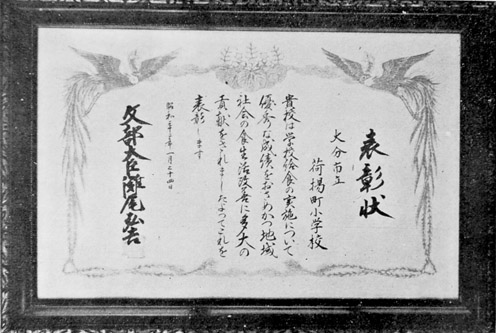 表彰状
大分市立
荷揚町小学校
貴校は学校給食の実施について
優秀な成績をおさめかつ地域
社会の食生活改善に多大の
貢献をされましたよってこれを
表彰します
昭和三十三年一月二十四日
文部大臣 灘尾弘吉